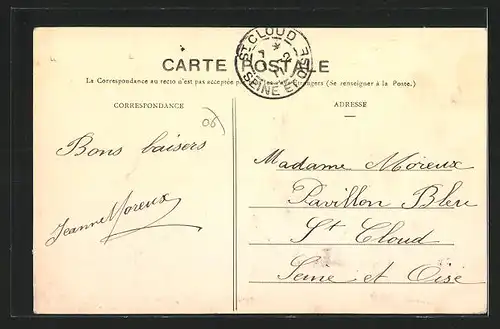 CARTE POSTALE
ST CLOUD
SEINE ET OISE
La Correspondance au recto n'est pas acceptée par les étrangers (Se renseigner à la Poste.)
CORRESPONDANCE
ADRESSE
06
Bons baisers
Jeanne Moreux
Madame Moreux
Pavillon Bleu
St Cloud
Seine et Oise